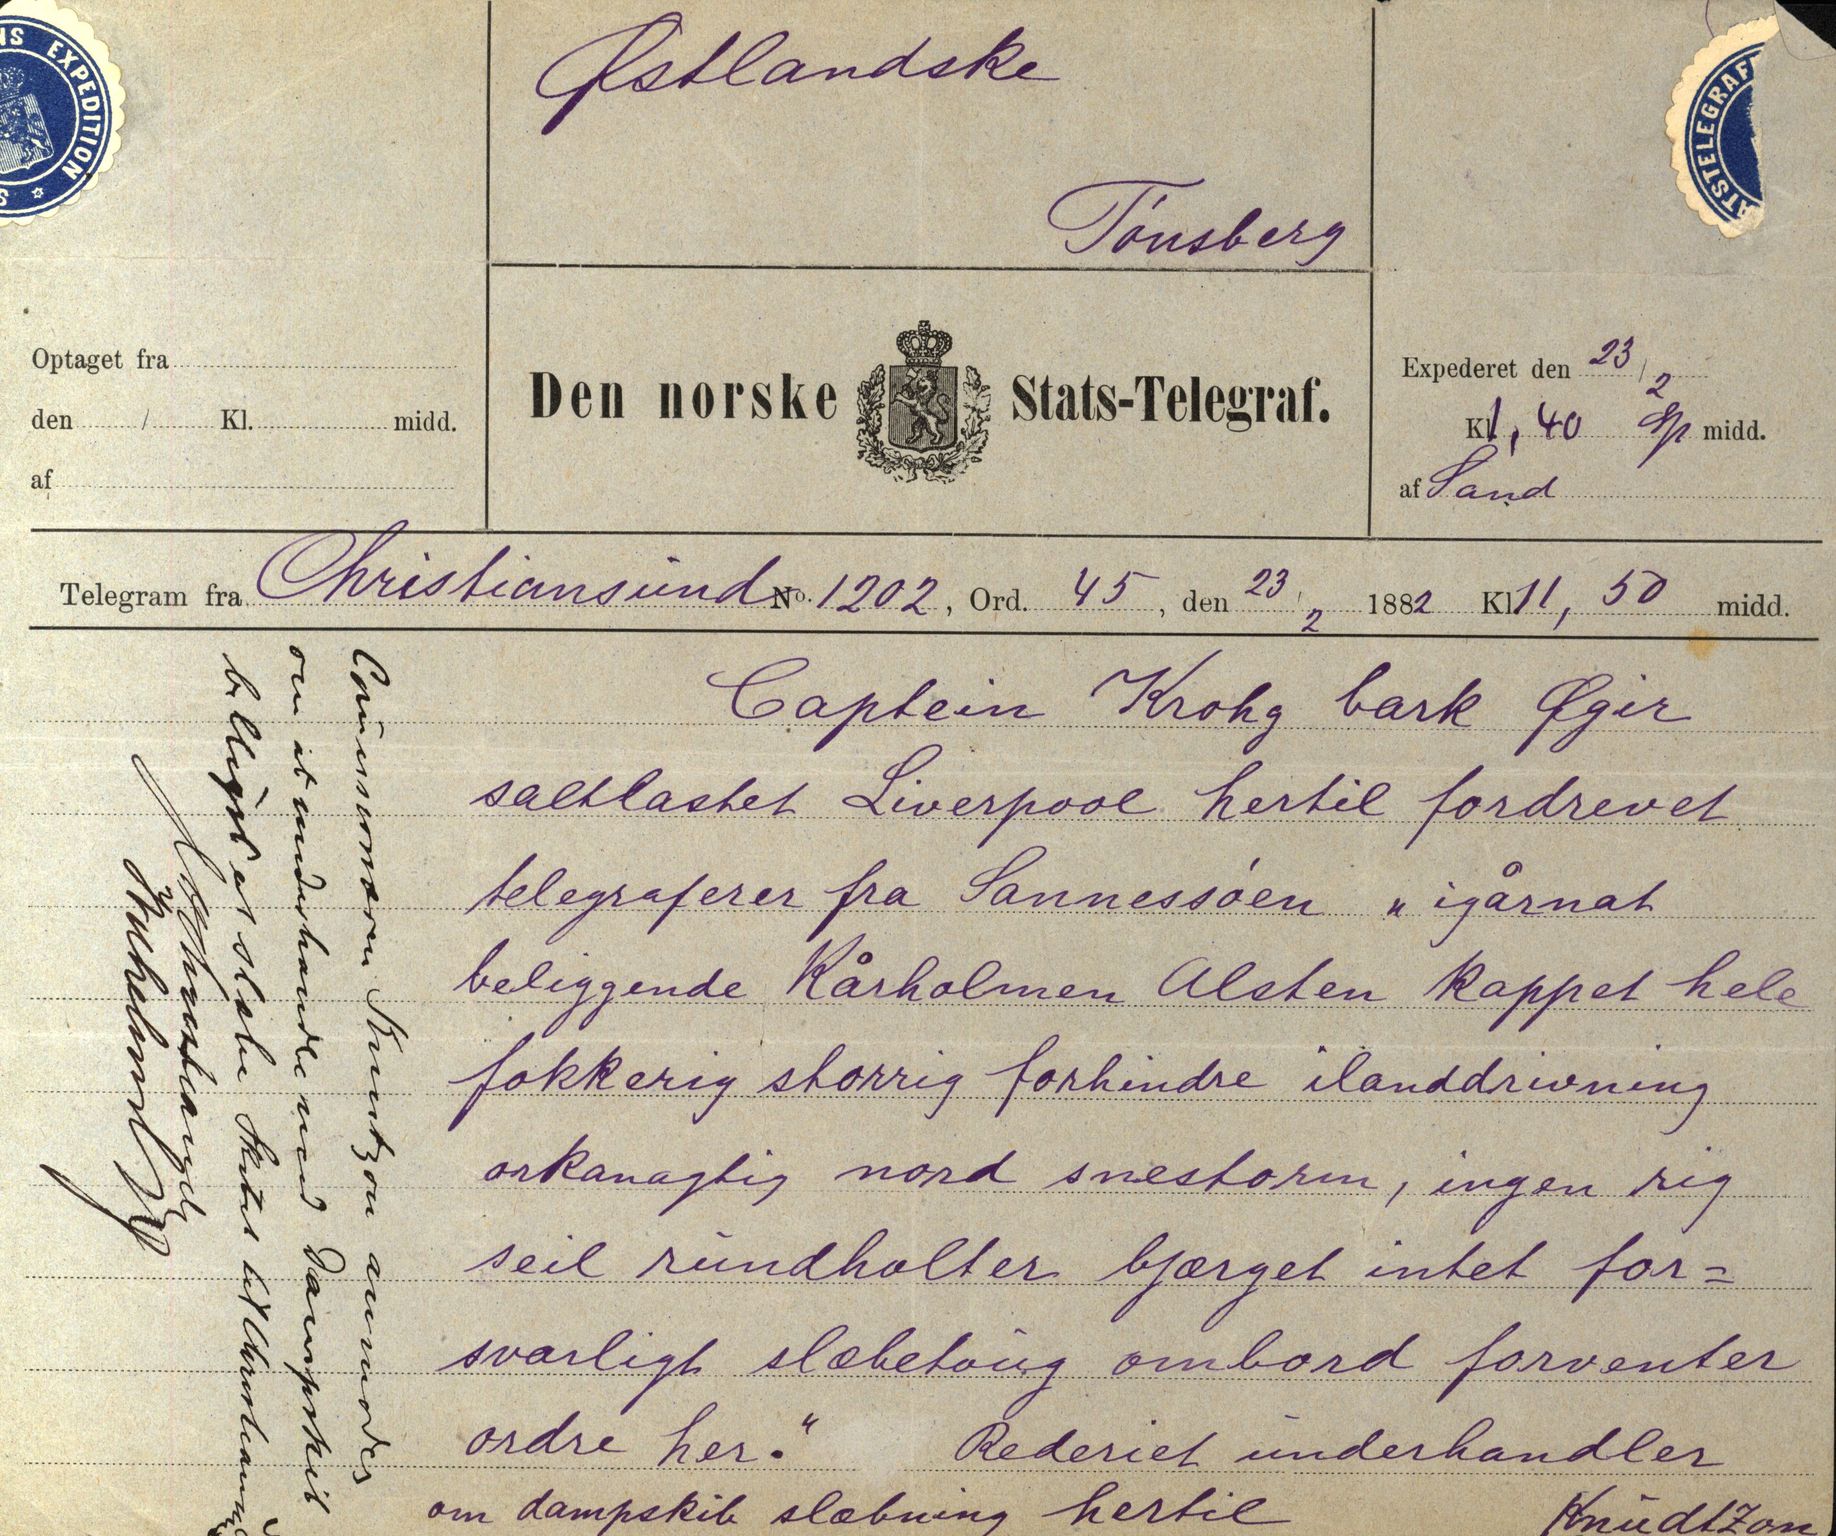 NS EXPEDITION
ATSTELEGRAF
Østlandske
Tönsberg
Optaget fra
den / Kl. midd.
af
Den norske Stats-Telegraf.
Expederet den 23/2
Kl 1,40 midd.
af Sand
Telegram fra Christiansund No. 1202, Ord. 45, den 23/2 1882 Kl 11,50 midd.
Captein Krohg bark Øgir
saltlastet Liverpool hertil fordrevet
telegraferer fra Sannessöen „igårnat
beliggende Kårholmen Alsten kappet hele
fokkerig storrig forhindre ilanddrivning
orkanagtig nord snestorm, ingen rig
seil rundholter bjærget intet for=
svarligt slæbetoug ombord forventer
ordre her." Rederiet underhandler
om dampskib slæbning hertil Knudtzon
Knudtzon anmodes
om at underhandle med Dampskib
belligst at slæbe